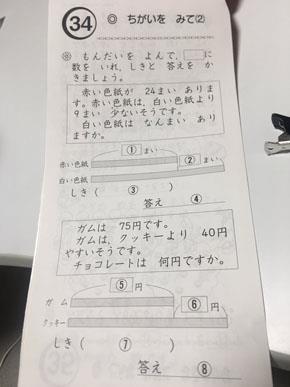 34 ◎ ちがいを みて②
※ もんだいを よんで、□に
数を いれ、しきと 答えを か
きましょう。
赤い色紙が 24まい ありま
す。赤い色紙は、白い色紙より
9まい 少ないそうです。
白い色紙は なんまい あり
ますか。
① まい
赤い色紙
② まい
白い色紙
しき ( ③ )
答え ④
ガムは 75円です。
ガムは、クッキーより 40円
やすいそうです。
チョコレートは 何円ですか。
⑤ 円
ガム
⑥ 円
クッキー
しき ( ⑦ )
答え ⑧